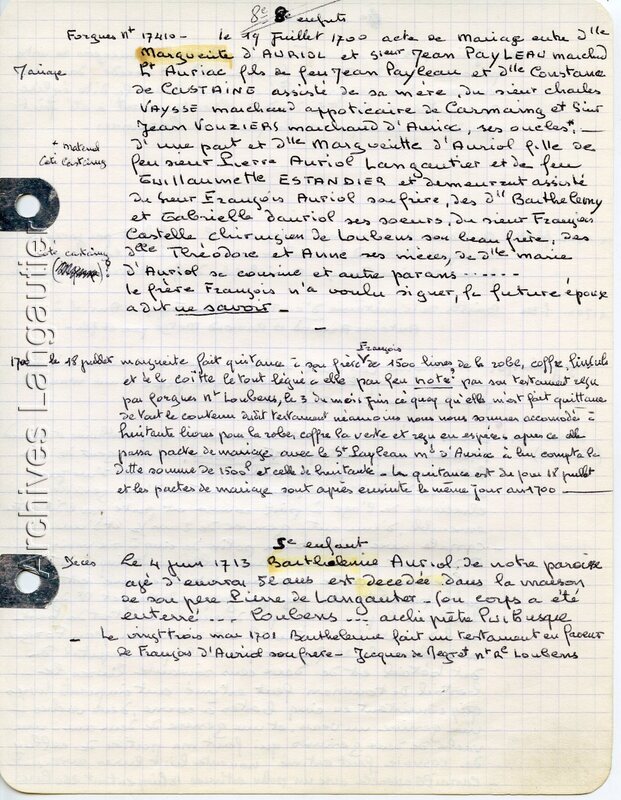 8e enfants
Forgues nt 17410 - le 19 Juillet 1700 acte de Mariage entre dlle
Marguerite d'AURIOL et sieur Jean PAYLEAU marchand
Mariage
Lt Auriac fils de feu Jean Payleau et dlle Constance
de CASTAING assisté de sa mère, du sieur charles
VAYSSE marchand appoticaire de Carmaing et Sieur
Jean VOUZIERS marchand d'Auriac, ses oncles*, -
* maternel
coté castaing
d'une part et dlle Marguerite d'Auriol fille de
feu sieur Pierre Auriol Langautier et de feu
GUILLAUMETTE ESTANDIER et demeurant assisté
du Sieur François Auriol son frère, des dlle Barthelemy
et Gabrielle d'auriol ses soeurs, du sieur François
Castelle chirurgien de Loubens son beau frère, des
coté castaing ?
dlle Théodore et Anne ses nièces, de dlle marie
d'Auriol sa cousine et autre parans ......
le frère François n'a voulu signer, la future épouse
a dit ne savoir -
1700 le 18 juillet marguerite fait quittance à son frère François de 1500 livres, de la robe, coffre,
et de la coitte le tout légué a elle par feu noté? par son testament reçu
par forgues nt Loubens, le 3 du mois
de tout le contenu dudit testament néanmoins nous nous sommes accomodé à
huitante livres pour la robe, coffre la veste et reçu en espèces apres ce elle
passa pacte de mariage avec le St Payleau md d'Auriac à leu compta la
ditte somme de 1500l et celle de huitante - la quittance est du jour 18 juillet
et les pactes de mariage sont après ensuite le même jour an 1700
5e enfant
Décès
Le 4 juin 1713 Barthelemie Auriol de notre paroisse
agé d'environ 52 ans est decedée dans la maison
de son père Pierre de Langautier - son corps a été
enterré .... Loubens ... archi prêtre Puibusque
- Le vingt trois mai 1701 Barthelemie fait un testament en faveur
de François d'Auriol son frere - Jacques de Negrot nt Re Loubens
Archives Langautier